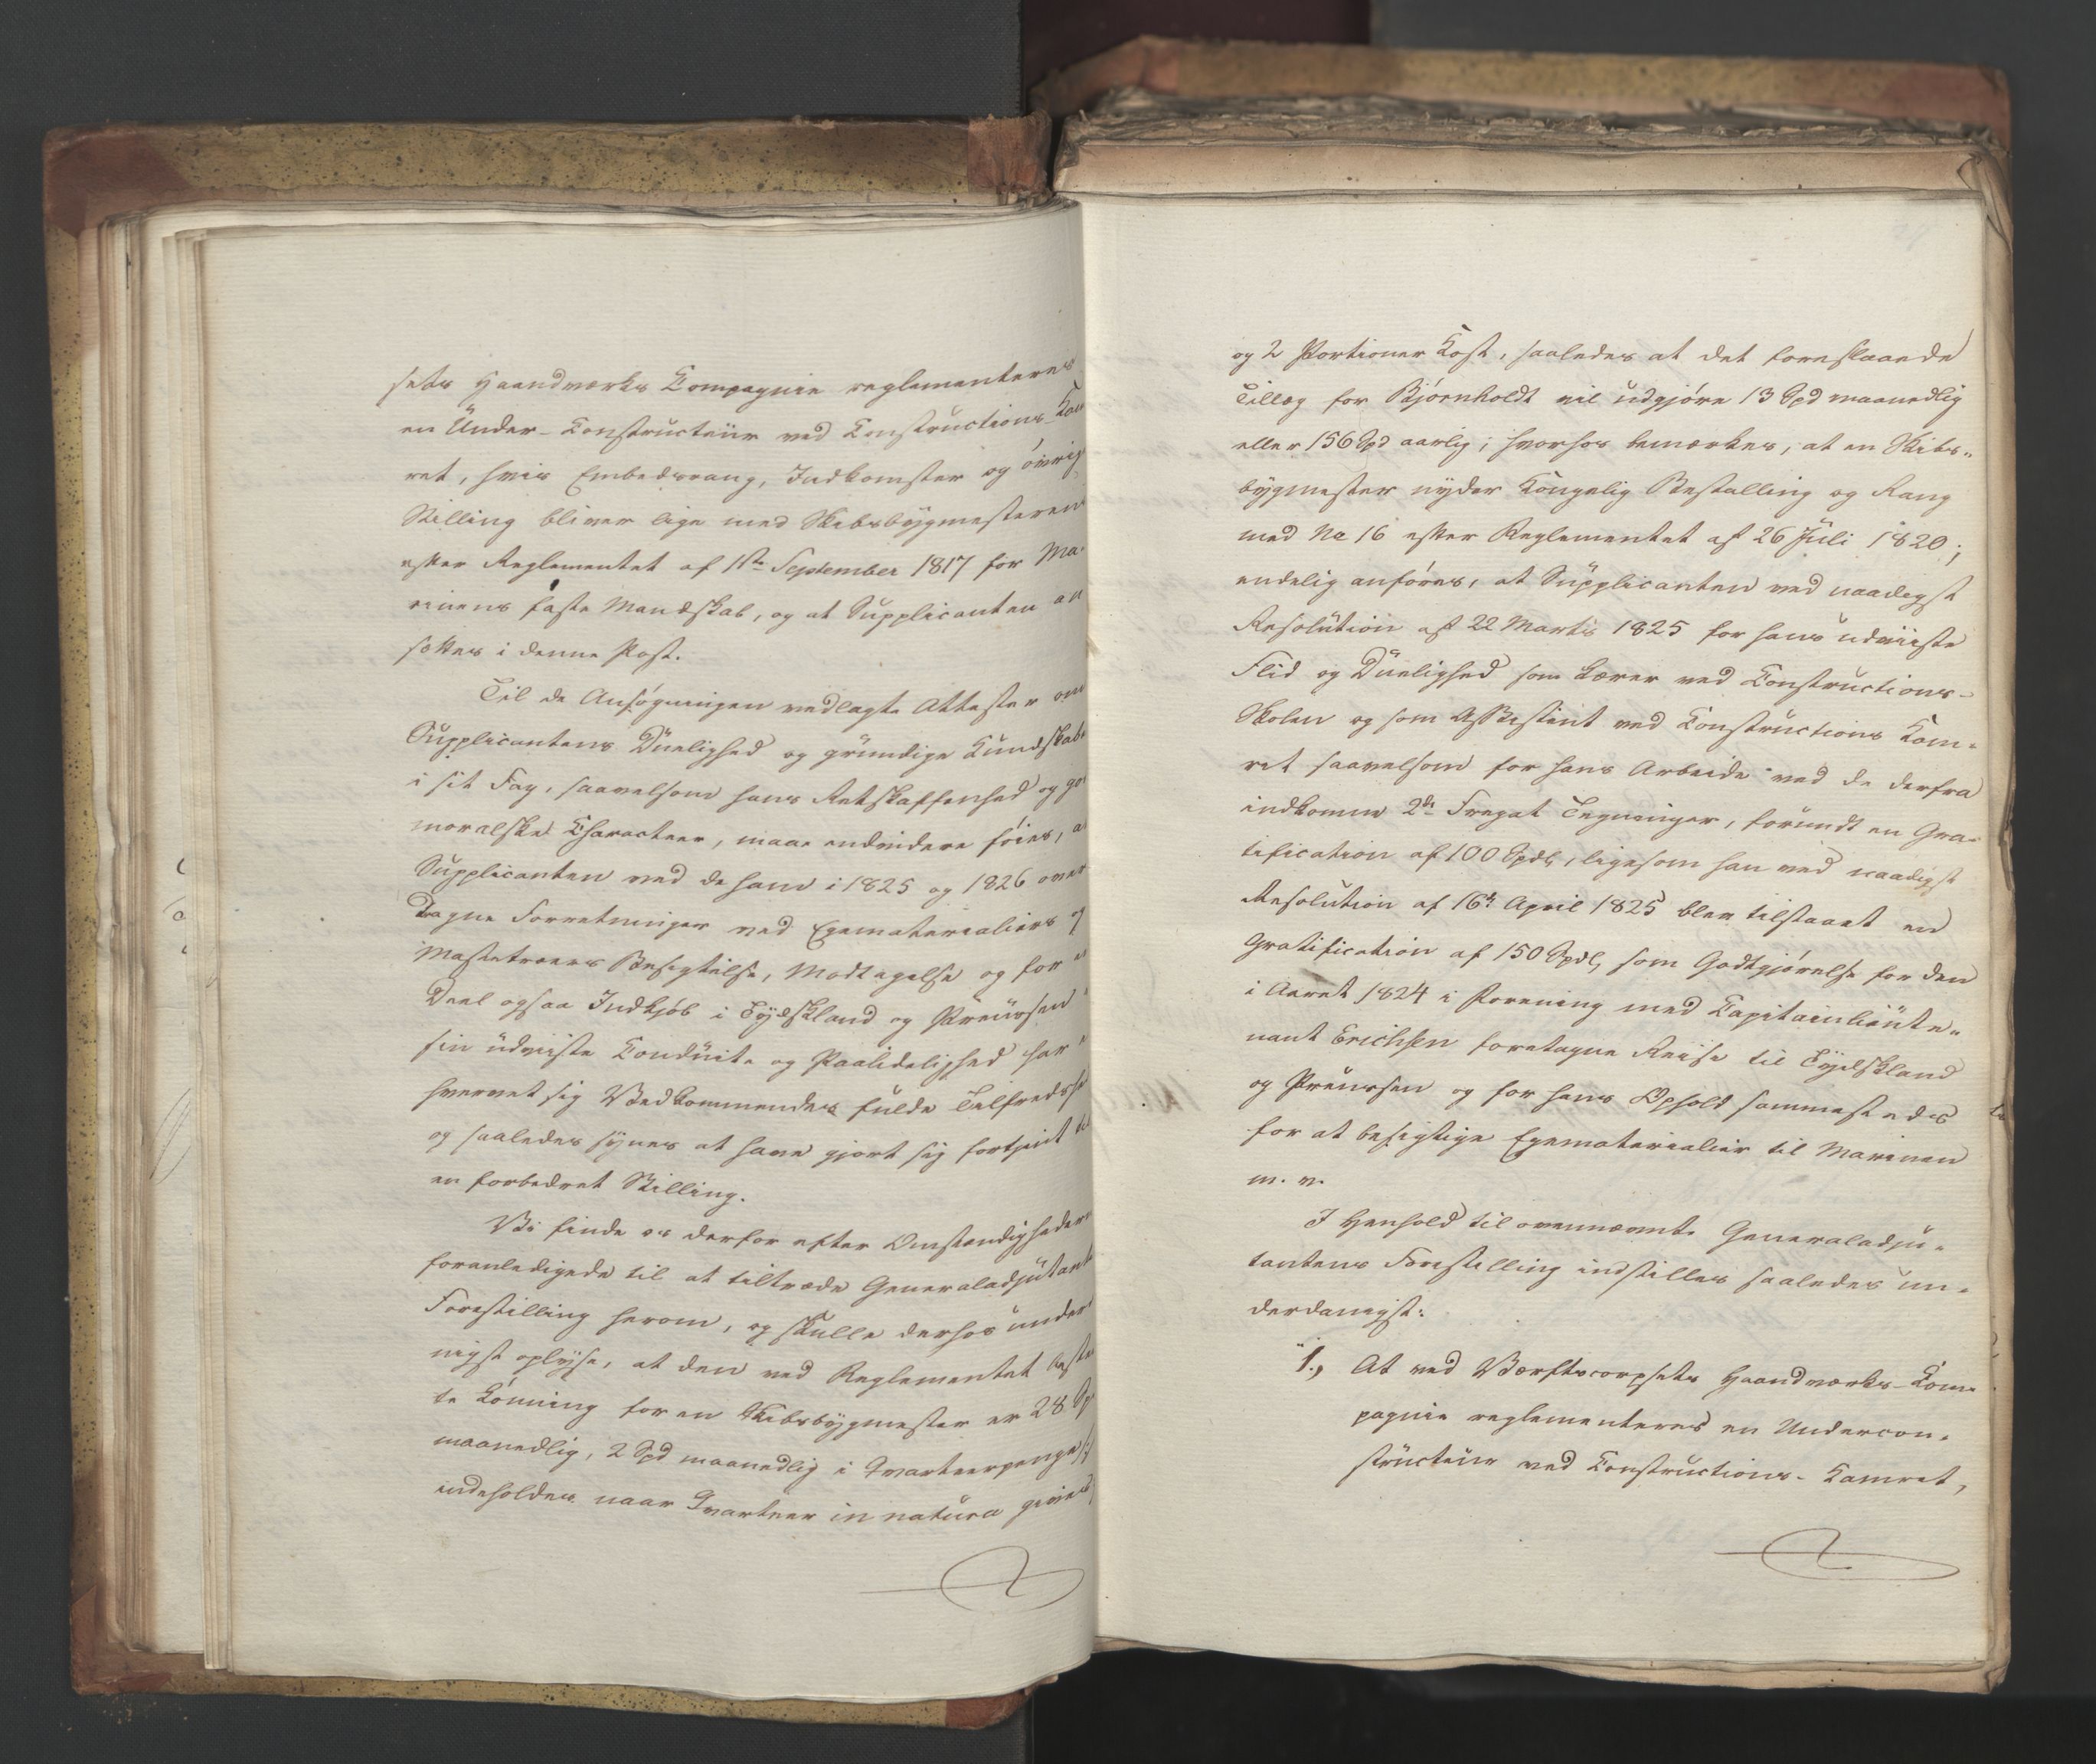 sets Haandværks Compagnie reglementeres
en Under-Constructeur ved Constructions-Kam
ret, hvis Embedsrang, Indkomster og øvrig
Stilling bliver lige med Skibsbygmesterens
efter Reglementet af 1ste September 1817 for Ma-
rinens faste Mandskab, og at Supplicanten an
sættes i denne Post.
Til de Ansøgningen vedlagte Attester om
Supplicantens Duelighed og grundige Kundskab
i sit Fag, saavelsom hans Retskaffenhed og go
moralske Characteer, maae endvidere føies, a
Supplicanten ved de ham i 1825 og 1826 over
dragne Forretninger ved Egematerialiers og
Mastetræers Besigtelse, Modtagelse og for
Deel ogsaa Indkjøb i Tydskland og Preussen
sin udviiste Conduite og Paalidelighed har
hvervet sig Vedkommendes fulde Tilfredshe
og saaledes synes at have gjort sig fortjent til
en forbedret Stilling.
Vi finde os derfor efter Omstændighedern
foranledigede til at tiltræde Generaladjutant
Forestilling herom, og skulle derhos under
nigst oplyse, at den ved Reglementet faste
te Lønning for en Skibsbygmester er 28 Sp
maanedlig, 2 Spd maanedlig i Qvarteerpenge
indeholdes naar Qvarteer in natura gives
og 2 Portioner Kost, saaledes at det foreslaaede
Tillæg for Bjørnholdt vil udgjøre 13 Spd maanedlig
eller 156 Spd aarlig; hvorhos bemærkes, at en Skibs-
bygmester nyder Kongelig Bestalling og Rang
med No 16 efter Reglementet af 26 Juli 1820;
endelig anføres, at Supplicanten ved naadigst
Resolution af 22 Marts 1825 for hans udviiste
Flid og Duelighed som Lærer ved Constructions-
Skolen og som Assistent ved Constructions Kam-
ret saavelsom for hans Arbeide ved de derfra
indkomne 2de Fregat Tegninger, forundt en Gra-
tification af 100 Spdl, ligesom han ved naadigst
Resolution af 16de April 1825 blev tilstaaet en
Gratification af 150 Spdl, som Godtgjørelse for den
i Aaret 1824 i Forening med Capitainlieute-
nant Erichsen foretagne Reise til Tydskland
og Preussen og for hans Ophold sammesteds
for at besigtige Egematerialier til Marinen
m. v.
I Henhold til ovennævnte Generaladju-
tantens Forestilling indstilles saaledes un-
derdanigst:
"1., At ved Værftscorpsets Haandværks-Com-
pagnie reglementeres en Undercon-
structeur ved Constructions-Kamret,